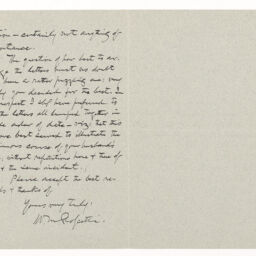 tion – certainly not anything of
portance.
The question of how best to ar-
the letters must no doubt
been a rather puzzling one; very
ly you decided for the best. In
respect I shd have preferred to
the letters all bumped together in
order of date – viz; but this
have best served to illustrate the
course of your husband's
, without repetitions here & there of
the same incident.
Please accept the best re-
& thanks of
Yours very truly,
Wm